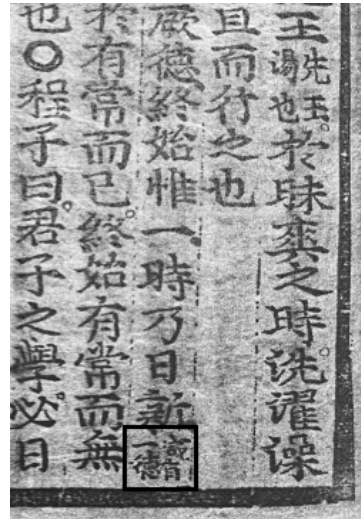 王先王湯也於昧爽之時洗濯澡
旦而行之也
厥德終始惟一時乃日新咸有一德
於有常而已終始有常而無
也○程子曰君子之學必日